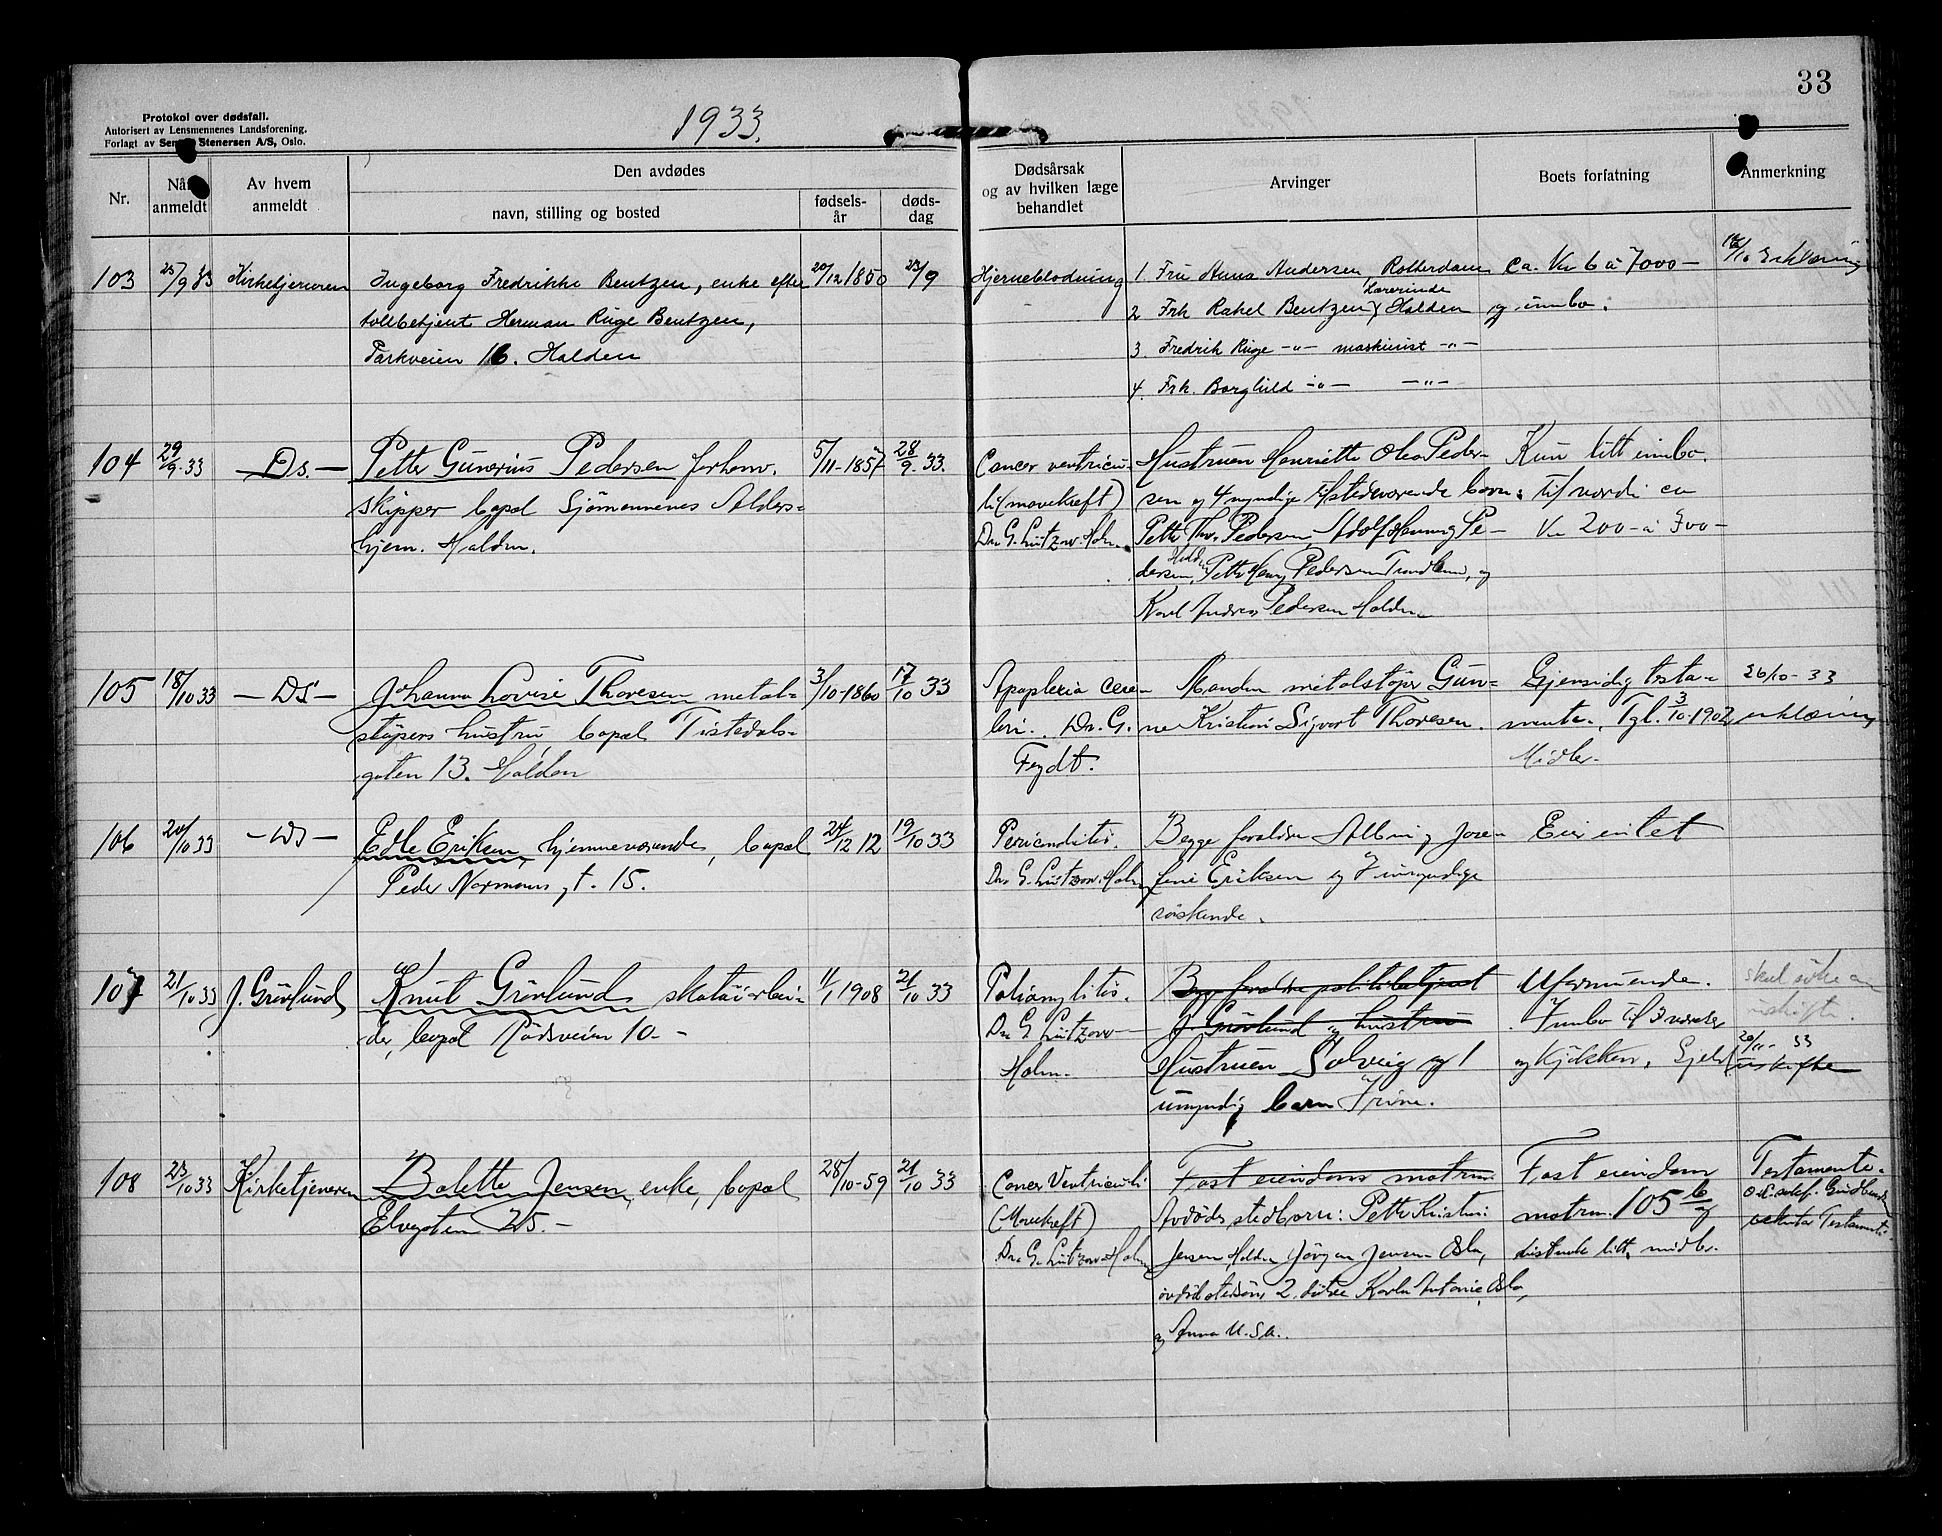 33
Protokol over dødsfall.
Autorisert av Lensmennenes Landsforening.
Forlagt av Sem & Stenersen A/S, Oslo.
1933.
Nr.
Når anmeldt
Av hvem anmeldt
Den avdødes
navn, stilling og bosted
fødsels-år
døds-dag
Dødsårsak og av hvilken læge behandlet
Arvinger
Boets forfatning
Anmerkning
103 25/9 33 Kirketjeneren
Ingeborg Fredrikke Bentzen, enke efter
tollbetjent Herman Ruge Bentzen,
Parkveien 16. Halden
20/12 1850 23/9
Hjerneblødning
1. Fru Anna Andersen, Rotterdam
Lærerinde
2 Frk Rakel Bentzen, Halden
3 Fredrik Ruge -"- maskinist -"-
4. Frk. Borghild -"- -"-
ca. Kr 6 à 7000-
og innbo.
Erklæring
104 29/9-33 -Ds.-
Petter Gunerius Pedersen forhenv.
skipper bopæl Sjømennenes Alders-
hjem. Halden.
5/11-1857 28/9-33.
Cancer ventricu-
li (mavekreft)
Dr. G. Lützow-Holm
Hustruen Henriette Olea Peder-
sen og 4 myndige tilstedeværende barn:
Petter Thv. Pedersen Adolf Henning Pe-
Halden
dersen, Petter Henry Pedersen og
Karl Andreas Pedersen Halden
Kun litt innbo.
til værdi ca
Kr 200- à 300-
105 18/10 33 -Ds-
Johanna Lovise Thoresen metal-
støpers hustru bopæl Tistedals-
gaten 13. Halden
3/10-1860 17/10 33
Apoplexia cere-
bri. Dr. G.
Feydt.
Manden metalstøper Gun-
nar Kristian Sigvart Thoresen.
Gjensidig testa-
mente. Tgl. 3/10-1902
Midler.
26/10-33
erklæring
106 20/10 33 -Ds-
Edle Eriksen, hjemmeværende, bopæl
Peder Normans gt. 15.
24/12 12 19/10 33
Dr. G. Lützow-Holm
Begge foreldre Albin og Josen
fine Eriksen og 7 umyndige
søskende.
Eier intet
107 21/10 33 J. Grønlund
Knut Grønlund skotøiarbei-
der, bopæl Rødsveien 10.-
1/1 1908 21/10 33
Dr. G. Lützow-
Holm-
Begge foreldre politibetjent
J. Grønlund og hustru
Hustruen Solveig og 1
umyndig barn
Uformuende.
Innbo til 3 værelser
og kjøkken. Gjeld
20/11- 33
uskifte
108 23/10 33 Kirketjeneren
Bolette Jensen, enke, bopæl
Elvegaten 25.-
28/10-59 21/10 33
Cancer Ventriculi
(Mavekreft)
Dr. G. Lützow-Holm
Fast eiendom matrn.
Avdødes stedbarn: Petter Kristian
Jensen Halden Jørgen Jensen Oslo,
2. døtre Karla Antonie, Oslo,
og Anna U.S.A.
Fast eiendom
matrn. 105 b og
litt midler.
Testamente.